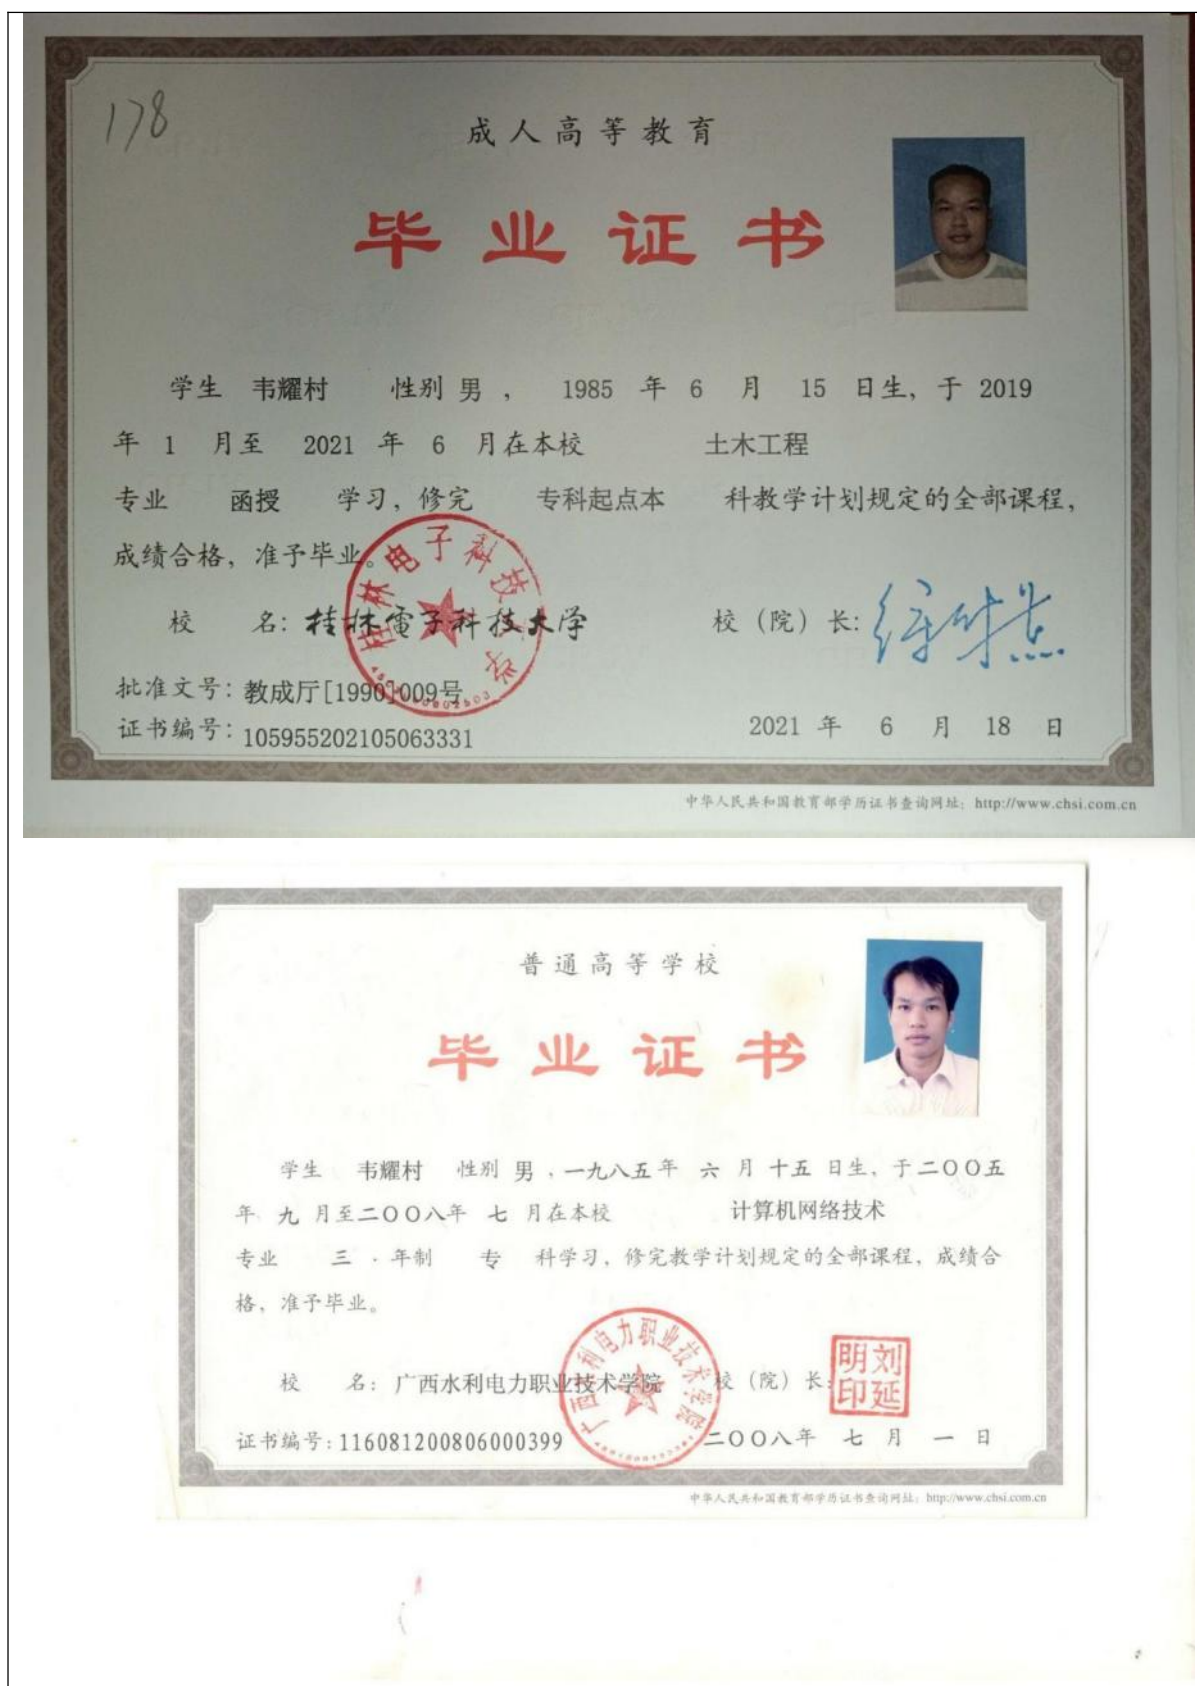 178
成人高等教育
毕业证书
学生 韦耀村 性别 男 ， 1985 年 6 月 15 日生，于 2019
年 1 月至 2021 年 6 月在本校 土木工程
专业 函授 学习，修完 专科起点本 科教学计划规定的全部课程，
成绩合格，准予毕业。
桂林电子科技大学
校 名：桂林電子科技大学 校（院）长：
批准文号：教成厅[1990]009号
证书编号：105955202105063331 2021 年 6 月 18 日
中华人民共和国教育部学历证书查询网址：http://www.chsi.com.cn
普通高等学校
毕业证书
学生 韦耀村 性别 男 ，一九八五年 六 月 十五 日生，于二〇〇五
年 九 月至二〇〇八年 七 月在本校 计算机网络技术
专业 三 · 年制 专 科学习，修完教学计划规定的全部课程，成绩合
格，准予毕业。
广西水利电力职业技术学院
校 名：广西水利电力职业技术学院 校（院）长：
刘延明印
证书编号：116081200806000399 二〇〇八年 七 月 一 日
中华人民共和国教育部学历证书查询网址：http://www.chsi.com.cn